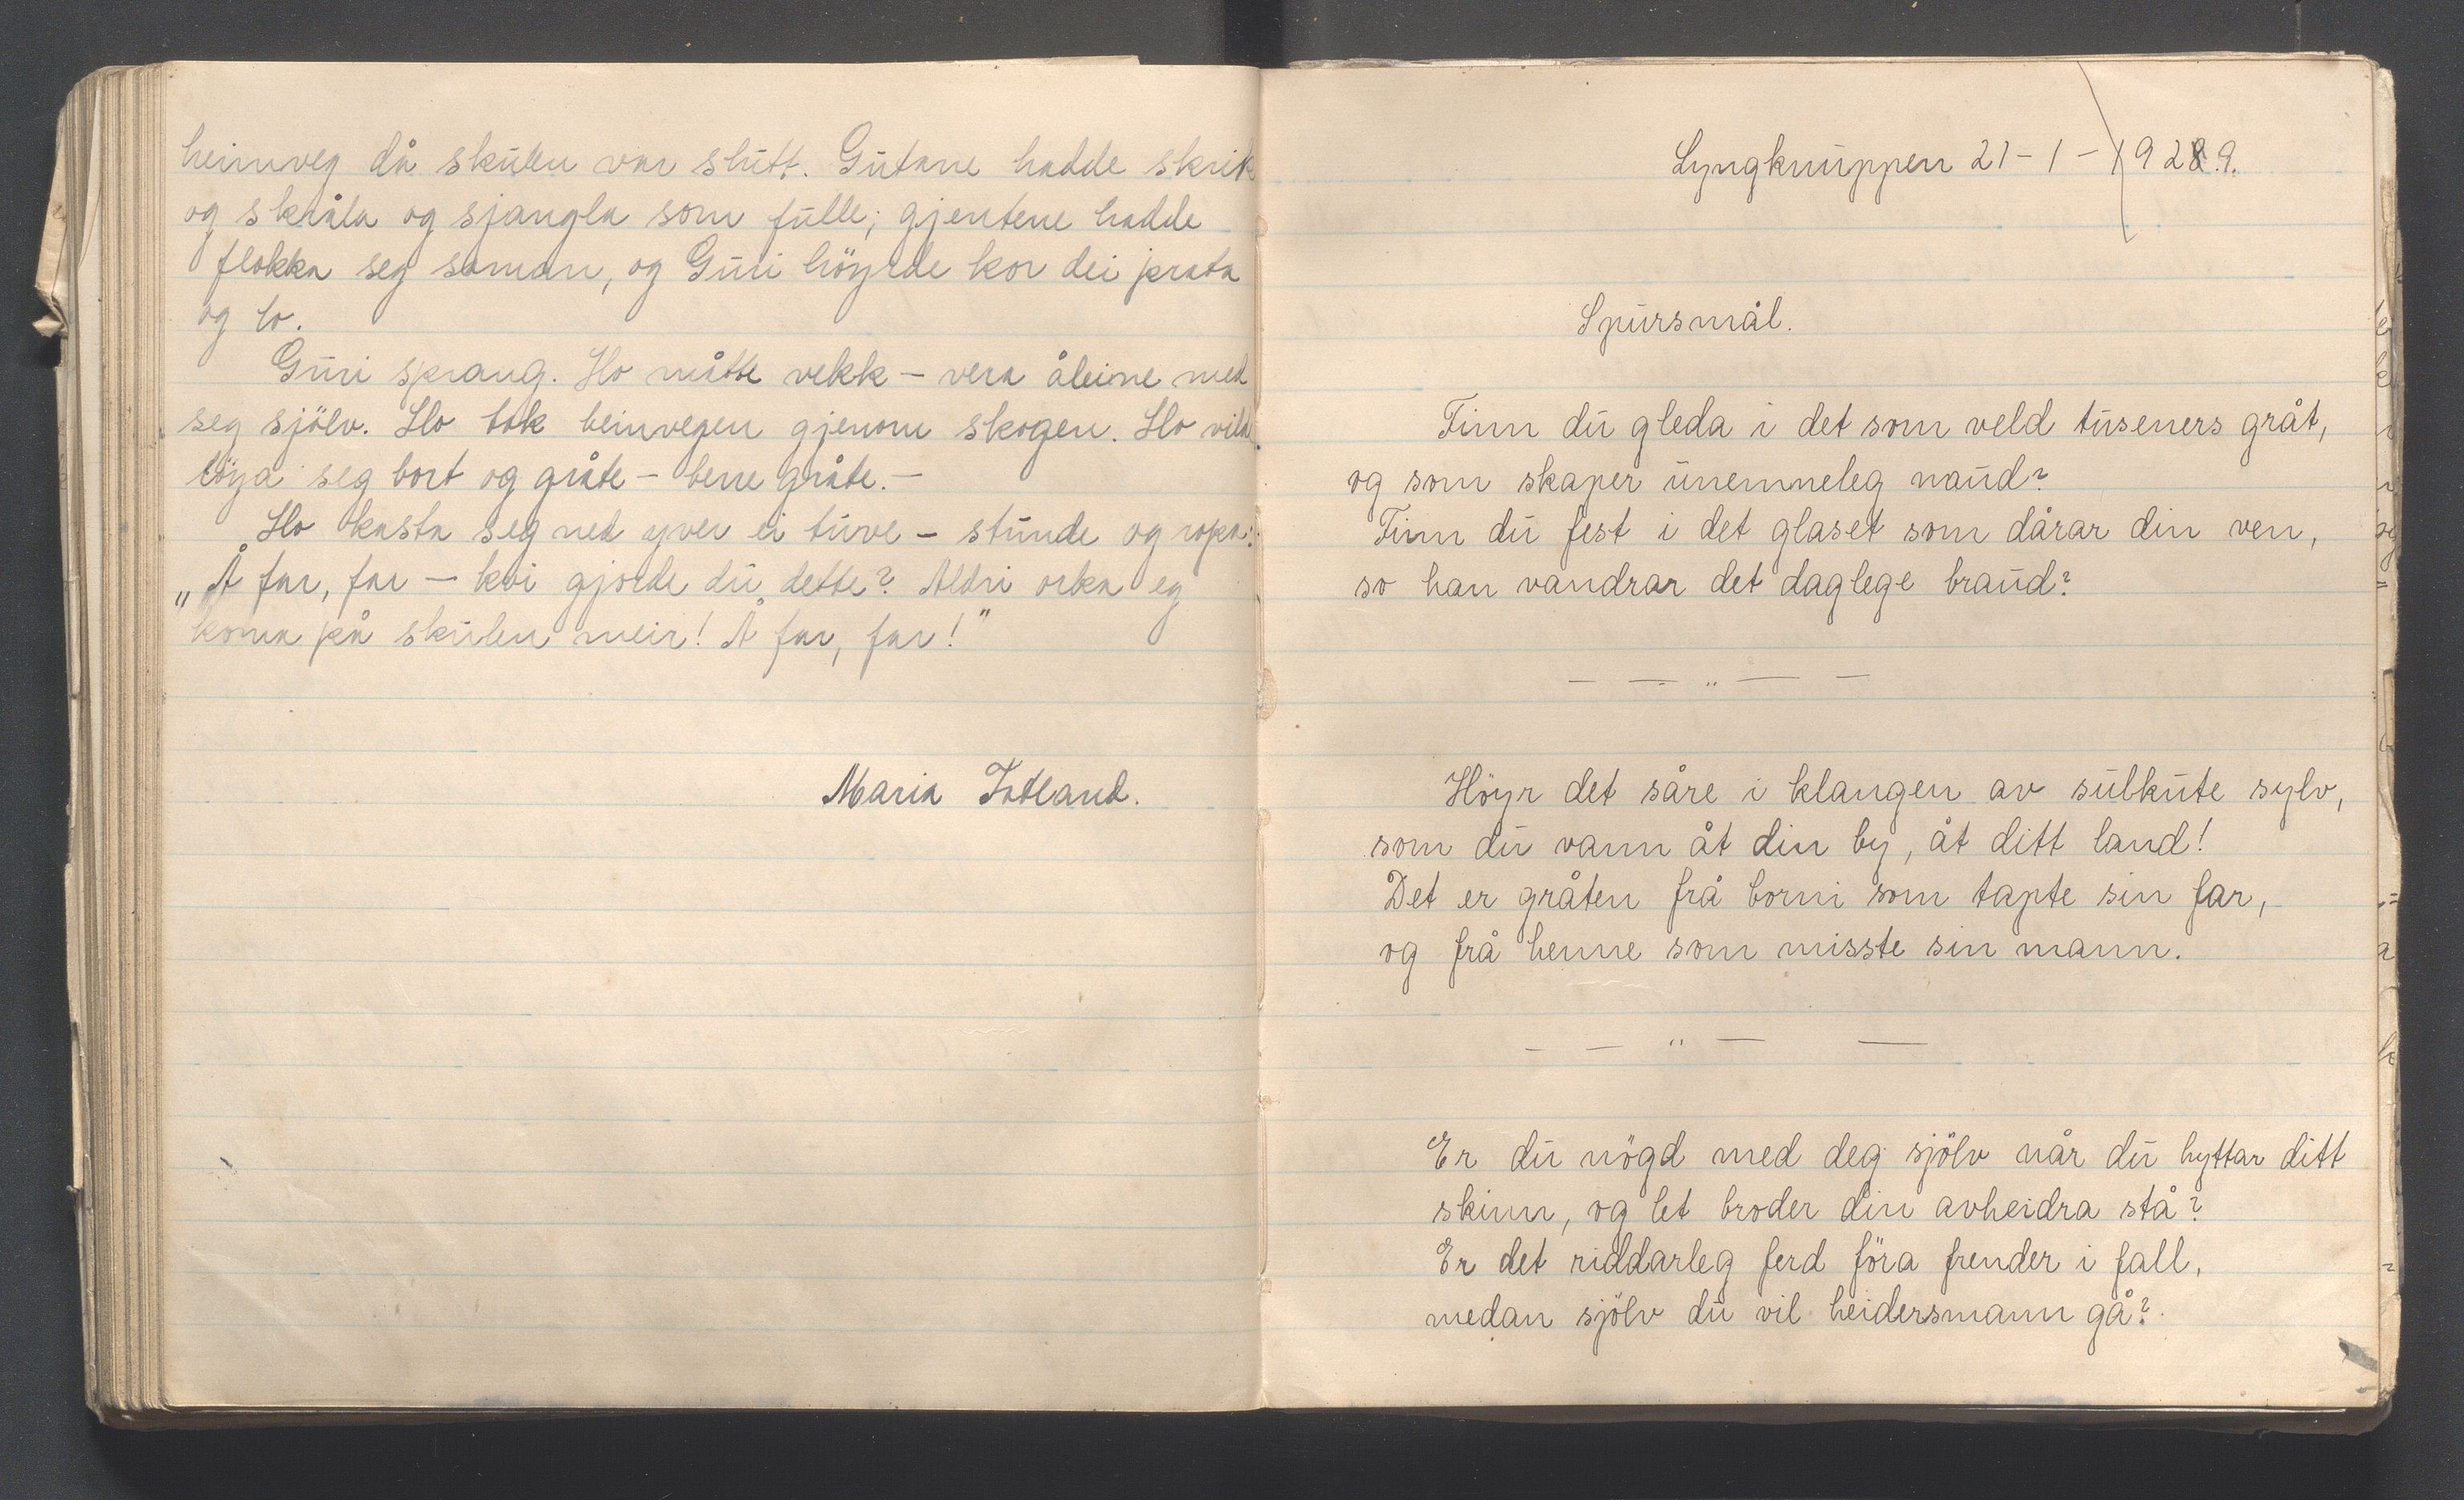 heimveg då skulen var slutt. Gutane hadde skrik
og skråla og sjangla som fulle; gjentene hadde
flokka seg saman, og Guri höyrde kor dei prata
og lo.
Guri sprang. Ho måtte vekk – vera åleine med
seg sjölv. Ho tok beinvegen gjenom skogen. Ho vilde
löyna seg bort og gråte – berre gråte. –
Ho kasta seg ned yver ei tuve – stunde og ropa:
„Å far, far – kvi gjorde du dette? Aldri orka eg
koma på skulen meir! Å far, far!"
Maria Tatland.
Lyngknuppen 21 – 1 – 1929.
Spursmål.
Finn du gleda i det som veld tuseners gråt,
og som skaper unemneleg naud?
Finn du fest i det glaset som dårar din ven,
so han vandrar det daglege braud?
– – „ – –
Höyr det såre i klangen av sulkute sylv,
som du vann åt din by, åt ditt land!
Det er gråten frå borni som tapte sin far,
og frå henne som misste sin mann.
– – „ – –
Er du nögd med deg sjölv når du hyttar ditt
skinn, og let broder din avheidra stå?
Er det riddarleg ferd föra frender i fall,
medan sjölv du vil heidersmann gå?